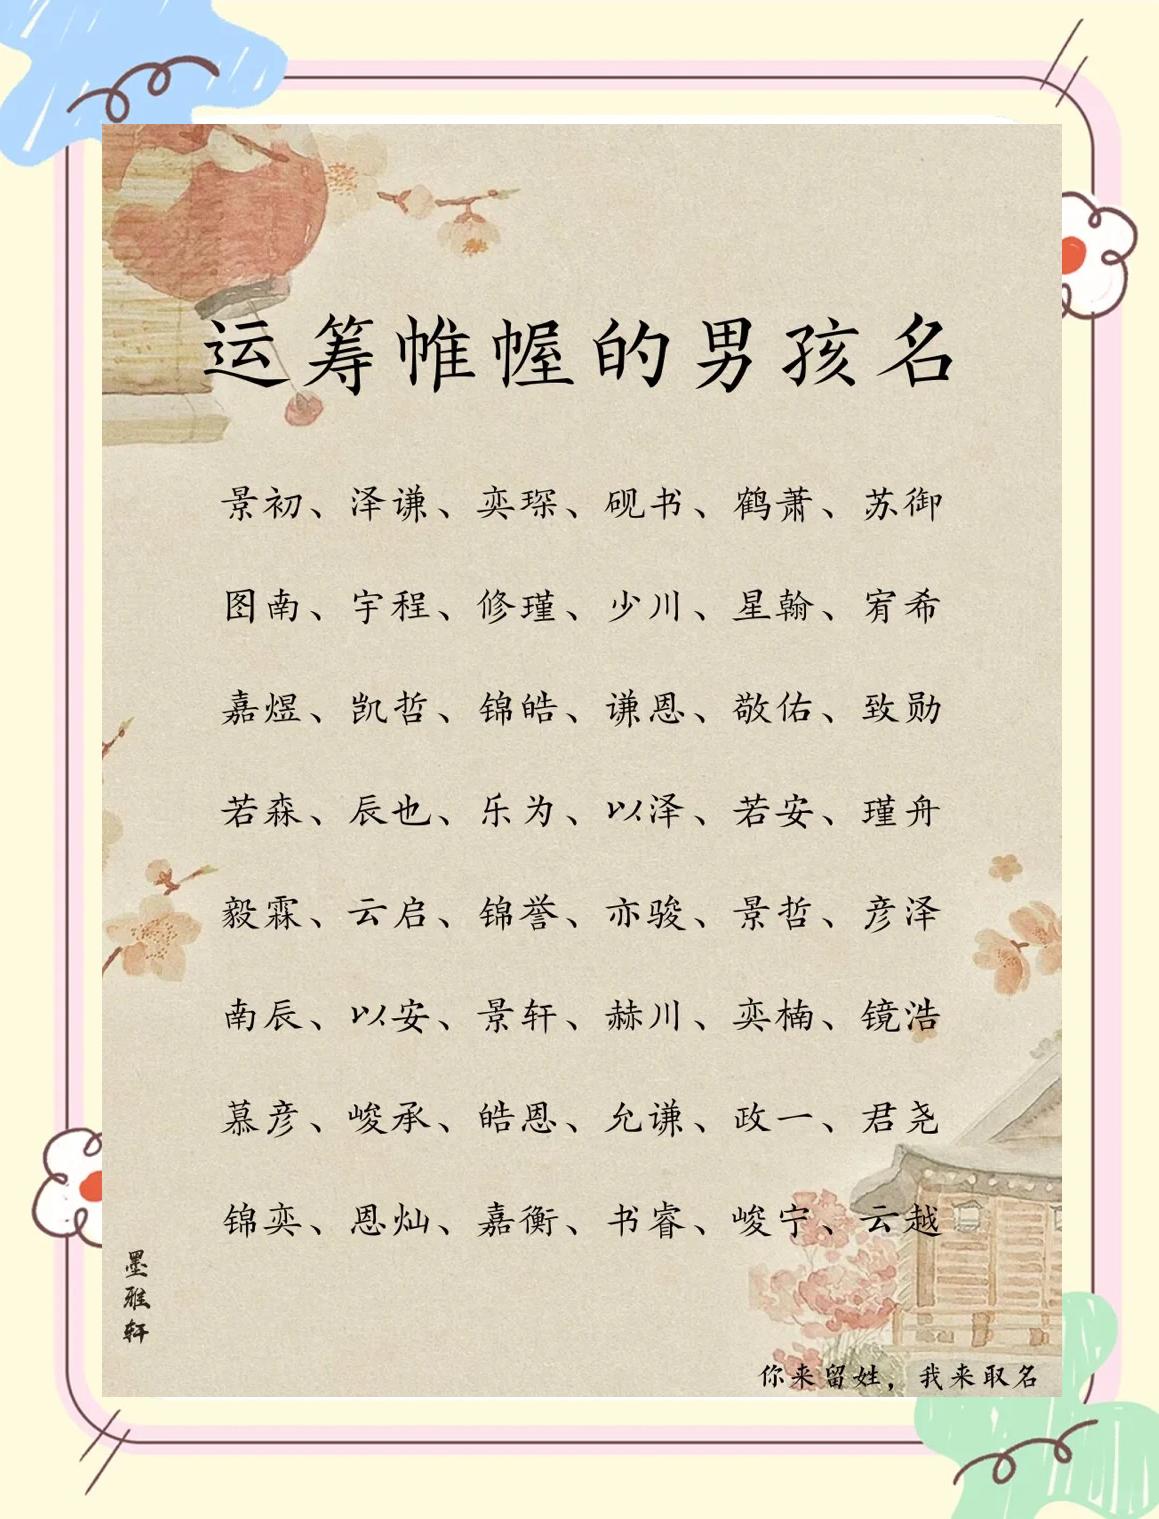 运筹帷幄的男孩名
景初、泽谦、奕琛、砚书、鹤萧、苏御
图南、宇程、修瑾、少川、星翰、宥希
嘉煜、凯哲、锦皓、谦恩、敬佑、致勋
若森、辰也、乐为、以泽、若安、瑾舟
毅霖、云启、锦誉、亦骏、景哲、彦泽
南辰、以安、景轩、赫川、奕楠、镜浩
慕彦、峻承、皓恩、允谦、政一、君尧
锦奕、恩灿、嘉衡、书睿、峻宁、云越
墨雅轩
你来留姓，我来取名